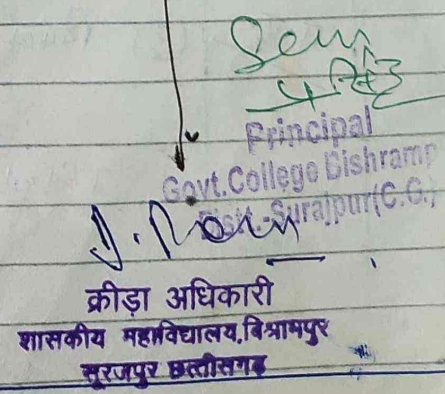 Principal
Govt. College Bishramp
Distt.-Surajpur(C.G.)
क्रीड़ा अधिकारी
शासकीय महाविद्यालय, बिश्रामपुर
सूरजपुर छत्तीसगढ़